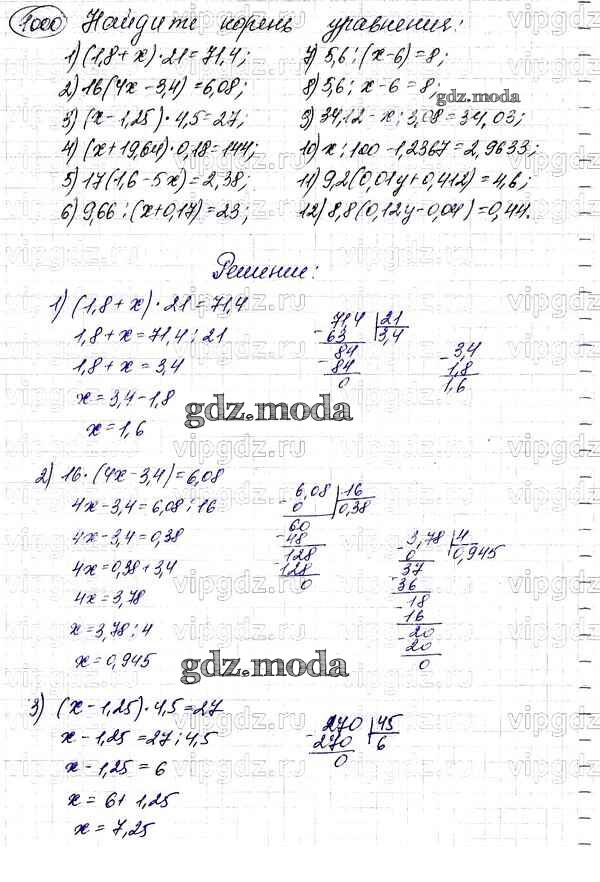 1000 Найдите корень уравнения:
1) (1,8 + x) · 21 = 71,4;
2) 16(4x - 3,4) = 6,08;
3) (x - 1,25) · 4,5 = 27;
4) (x + 19,64) · 0,18 = 144;
5) 17(1,6 - 5x) = 2,38;
6) 9,66 : (x + 0,17) = 23;
7) 5,6 : (x - 6) = 8;
8) 5,6 : x - 6 = 8;
gdz.moda
9) 34,12 - x : 3,08 = 34,03;
10) x : 100 - 1,2367 = 2,9633;
11) 9,2(0,01y + 0,412) = 4,6;
12) 8,8(0,12y - 0,04) = 0,44.
Решение:
1) (1,8 + x) · 21 = 71,4
1,8 + x = 71,4 : 21
1,8 + x = 3,4
x = 3,4 - 1,8
x = 1,6
71,4 21
- 63 3,4
84
- 84
0
- 3,4
1,8
1,6
gdz.moda
2) 16 · (4x - 3,4) = 6,08
4x - 3,4 = 6,08 : 16
4x - 3,4 = 0,38
4x = 0,38 + 3,4
4x = 3,78
x = 3,78 : 4
x = 0,945
6,08 16
- 0 0,38
60
- 48
128
- 128
0
3,78 4
- 0 0,945
37
- 36
18
- 16
20
- 20
0
gdz.moda
3) (x - 1,25) · 4,5 = 27
x - 1,25 = 27 : 4,5
x - 1,25 = 6
x = 6 + 1,25
x = 7,25
270 45
- 270 6
0
vipgdz.ru